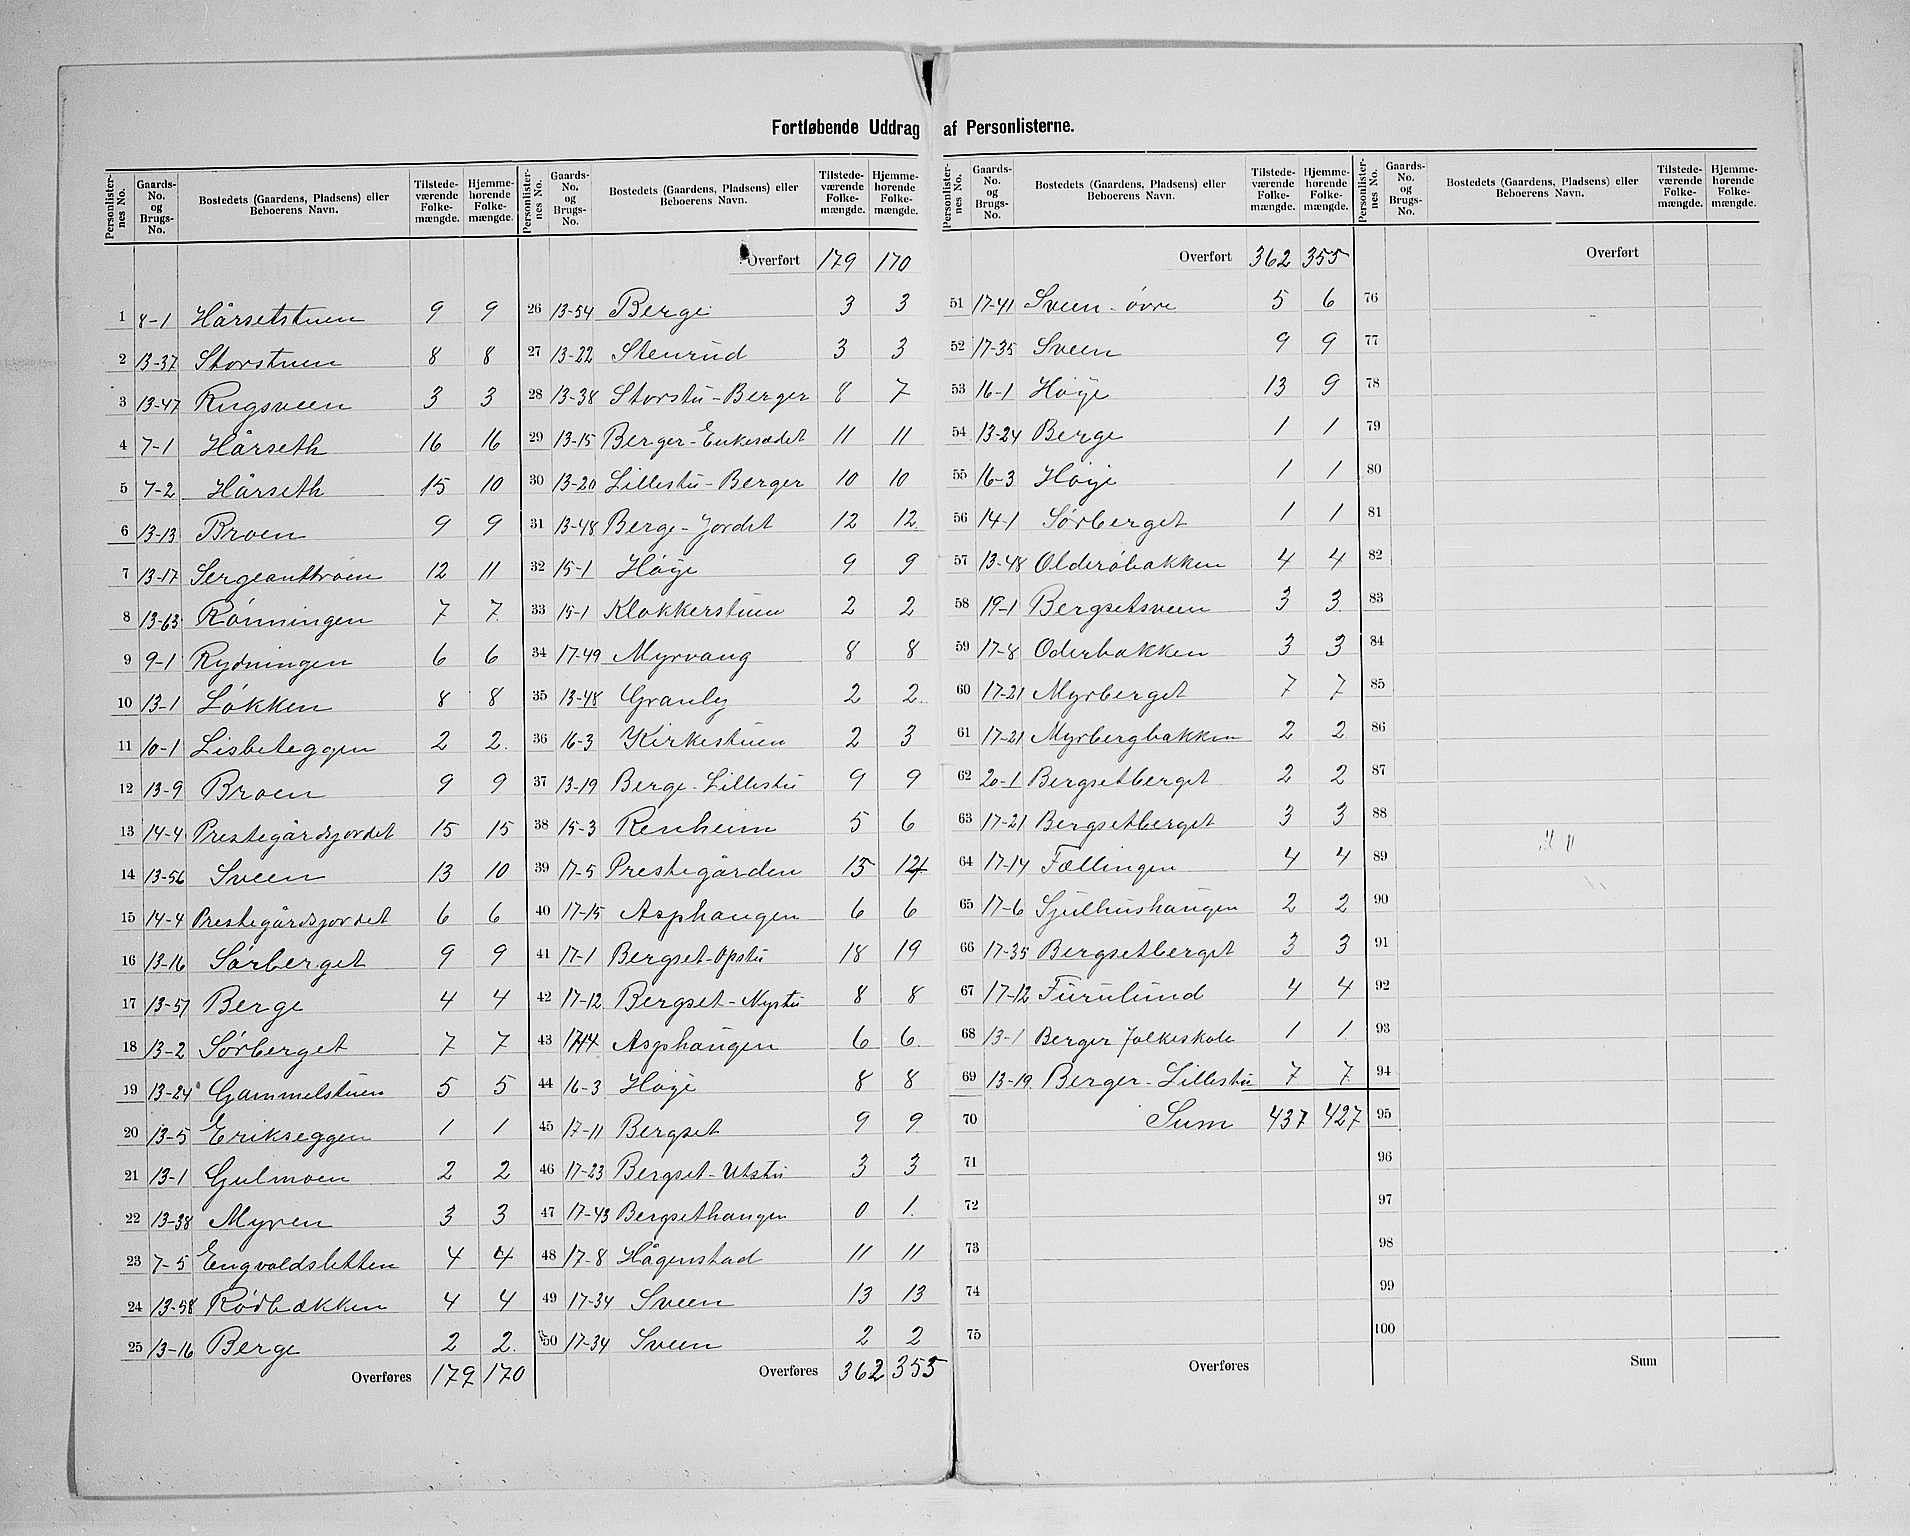 Fortløbende Uddrag af Personlisterne.
Personlister-nes No. | Gaards-No. og Brugs-No. | Bostedets (Gaardens, Pladsens) eller Beboerens Navn. | Tilstede-værende Folke-mængde. | Hjemme-hørende Folke-mængde.
1 8-1 Hårsetstuen 9 9
2 13-37 Storstuen 8 8
3 13-47 Rugsveen 3 3
4 7-1 Hårseth 16 16
5 7-2 Hårseth 15 10
6 13-13 Broen 9 9
7 13-17 Sergeanttroen 12 11
8 13-63 Rønningen 7 7
9 9-1 Rydningen 6 6
10 13-1 Løkken 8 8
11 10-1 Lisbeteggen 2 2
12 13-9 Broen 9 9
13 14-4 Prestegårdsjordet 15 15
14 13-56 Sveen 13 10
15 14-4 Prestegårdsjordet 6 6
16 13-16 Sørberget 9 9
17 13-51 Berge 4 4
18 13-2 Sørberget 7 7
19 13-24 Gammelstuen 5 5
20 13-5 Erikseggen 1 1
21 13-1 Gulmoen 2 2
22 13-38 Myren 3 3
23 7-5 Engvoldsletten 4 4
24 13-58 Rødbækken 4 4
25 13-16 Berge 2 2
Overføres 179 170
Personlister-nes No. | Gaards-No. og Brugs-No. | Bostedets (Gaardens, Pladsens) eller Beboerens Navn. | Tilstede-værende Folke-mængde. | Hjemme-hørende Folke-mængde.
Overført 179 170
26 13-54 Berge 3 3
27 13-22 Stenrud 3 3
28 13-38 Storstu-Berger 8 7
29 13-15 Berger-Enkesædet 11 11
30 13-20 Lillestu-Berger 10 10
31 13-48 Berge-Jordet 12 12
32 15-1 Høye 9 9
33 15-1 Klokkerstuen 2 2
34 17-49 Myrvang 8 8
35 13-48 Granly 2 2
36 16-3 Kirkestuen 2 3
37 13-19 Berge-Lillestu 9 9
38 15-3 Renheim 5 6
39 17-5 Prestegården 15 14
40 17-15 Asphaugen 6 6
41 17-1 Bergset-Opstu 18 19
42 17-12 Bergset-Nystu 8 8
43 17-14 Asphaugen 6 6
44 16-3 Høye 8 8
45 17-11 Bergset 9 9
46 17-23 Bergset-Utstu 3 3
47 17-43 Bergsethaugen 0 1
48 17-8 Hågenstad 11 11
49 17-34 Sveen 13 13
50 17-34 Sveen 2 2
Overføres 362 355
Personlister-nes No. | Gaards-No. og Brugs-No. | Bostedets (Gaardens, Pladsens) eller Beboerens Navn. | Tilstede-værende Folke-mængde. | Hjemme-hørende Folke-mængde.
Overført 362 355
51 17-41 Sveen-øvre 5 6
52 17-35 Sveen 9 9
53 16-1 Høye 13 9
54 13-24 Berge 1 1
55 16-3 Høye 1 1
56 14-1 Sørberget 1 1
57 13-48 Olderøbakken 4 4
58 19-1 Bergsetsveen 3 3
59 17-8 Oderbakken 3 3
60 17-21 Myrberget 7 7
61 17-21 Myrbergbakken 2 2
62 20-1 Bergsetberget 2 2
63 17-21 Bergsetberget 3 3
64 17-14 Fællingen 4 4
65 17-6 Sjulhushaugen 2 2
66 17-35 Bergsetberget 3 3
67 17-12 Furulund 4 4
68 13-1 Berger folkeskole 1 1
69 13-19 Berger-Lillestu 7 7
70 Sum 437 427
71
72
73
74
75
Overføres
Personlister-nes No. | Gaards-No. og Brugs-No. | Bostedets (Gaardens, Pladsens) eller Beboerens Navn. | Tilstede-værende Folke-mængde. | Hjemme-hørende Folke-mængde.
Overført
76
77
78
79
80
81
82
83
84
85
86
87
88
89
90
91
92
93
94
95
96
97
98
99
100
Sum